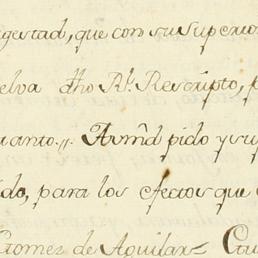 gestad, que con su Superior
elva dho Rl. Rescripto, p
uanto,,. A vmd pido y sup
ido, para los efectos que
Gomez de Aguilar